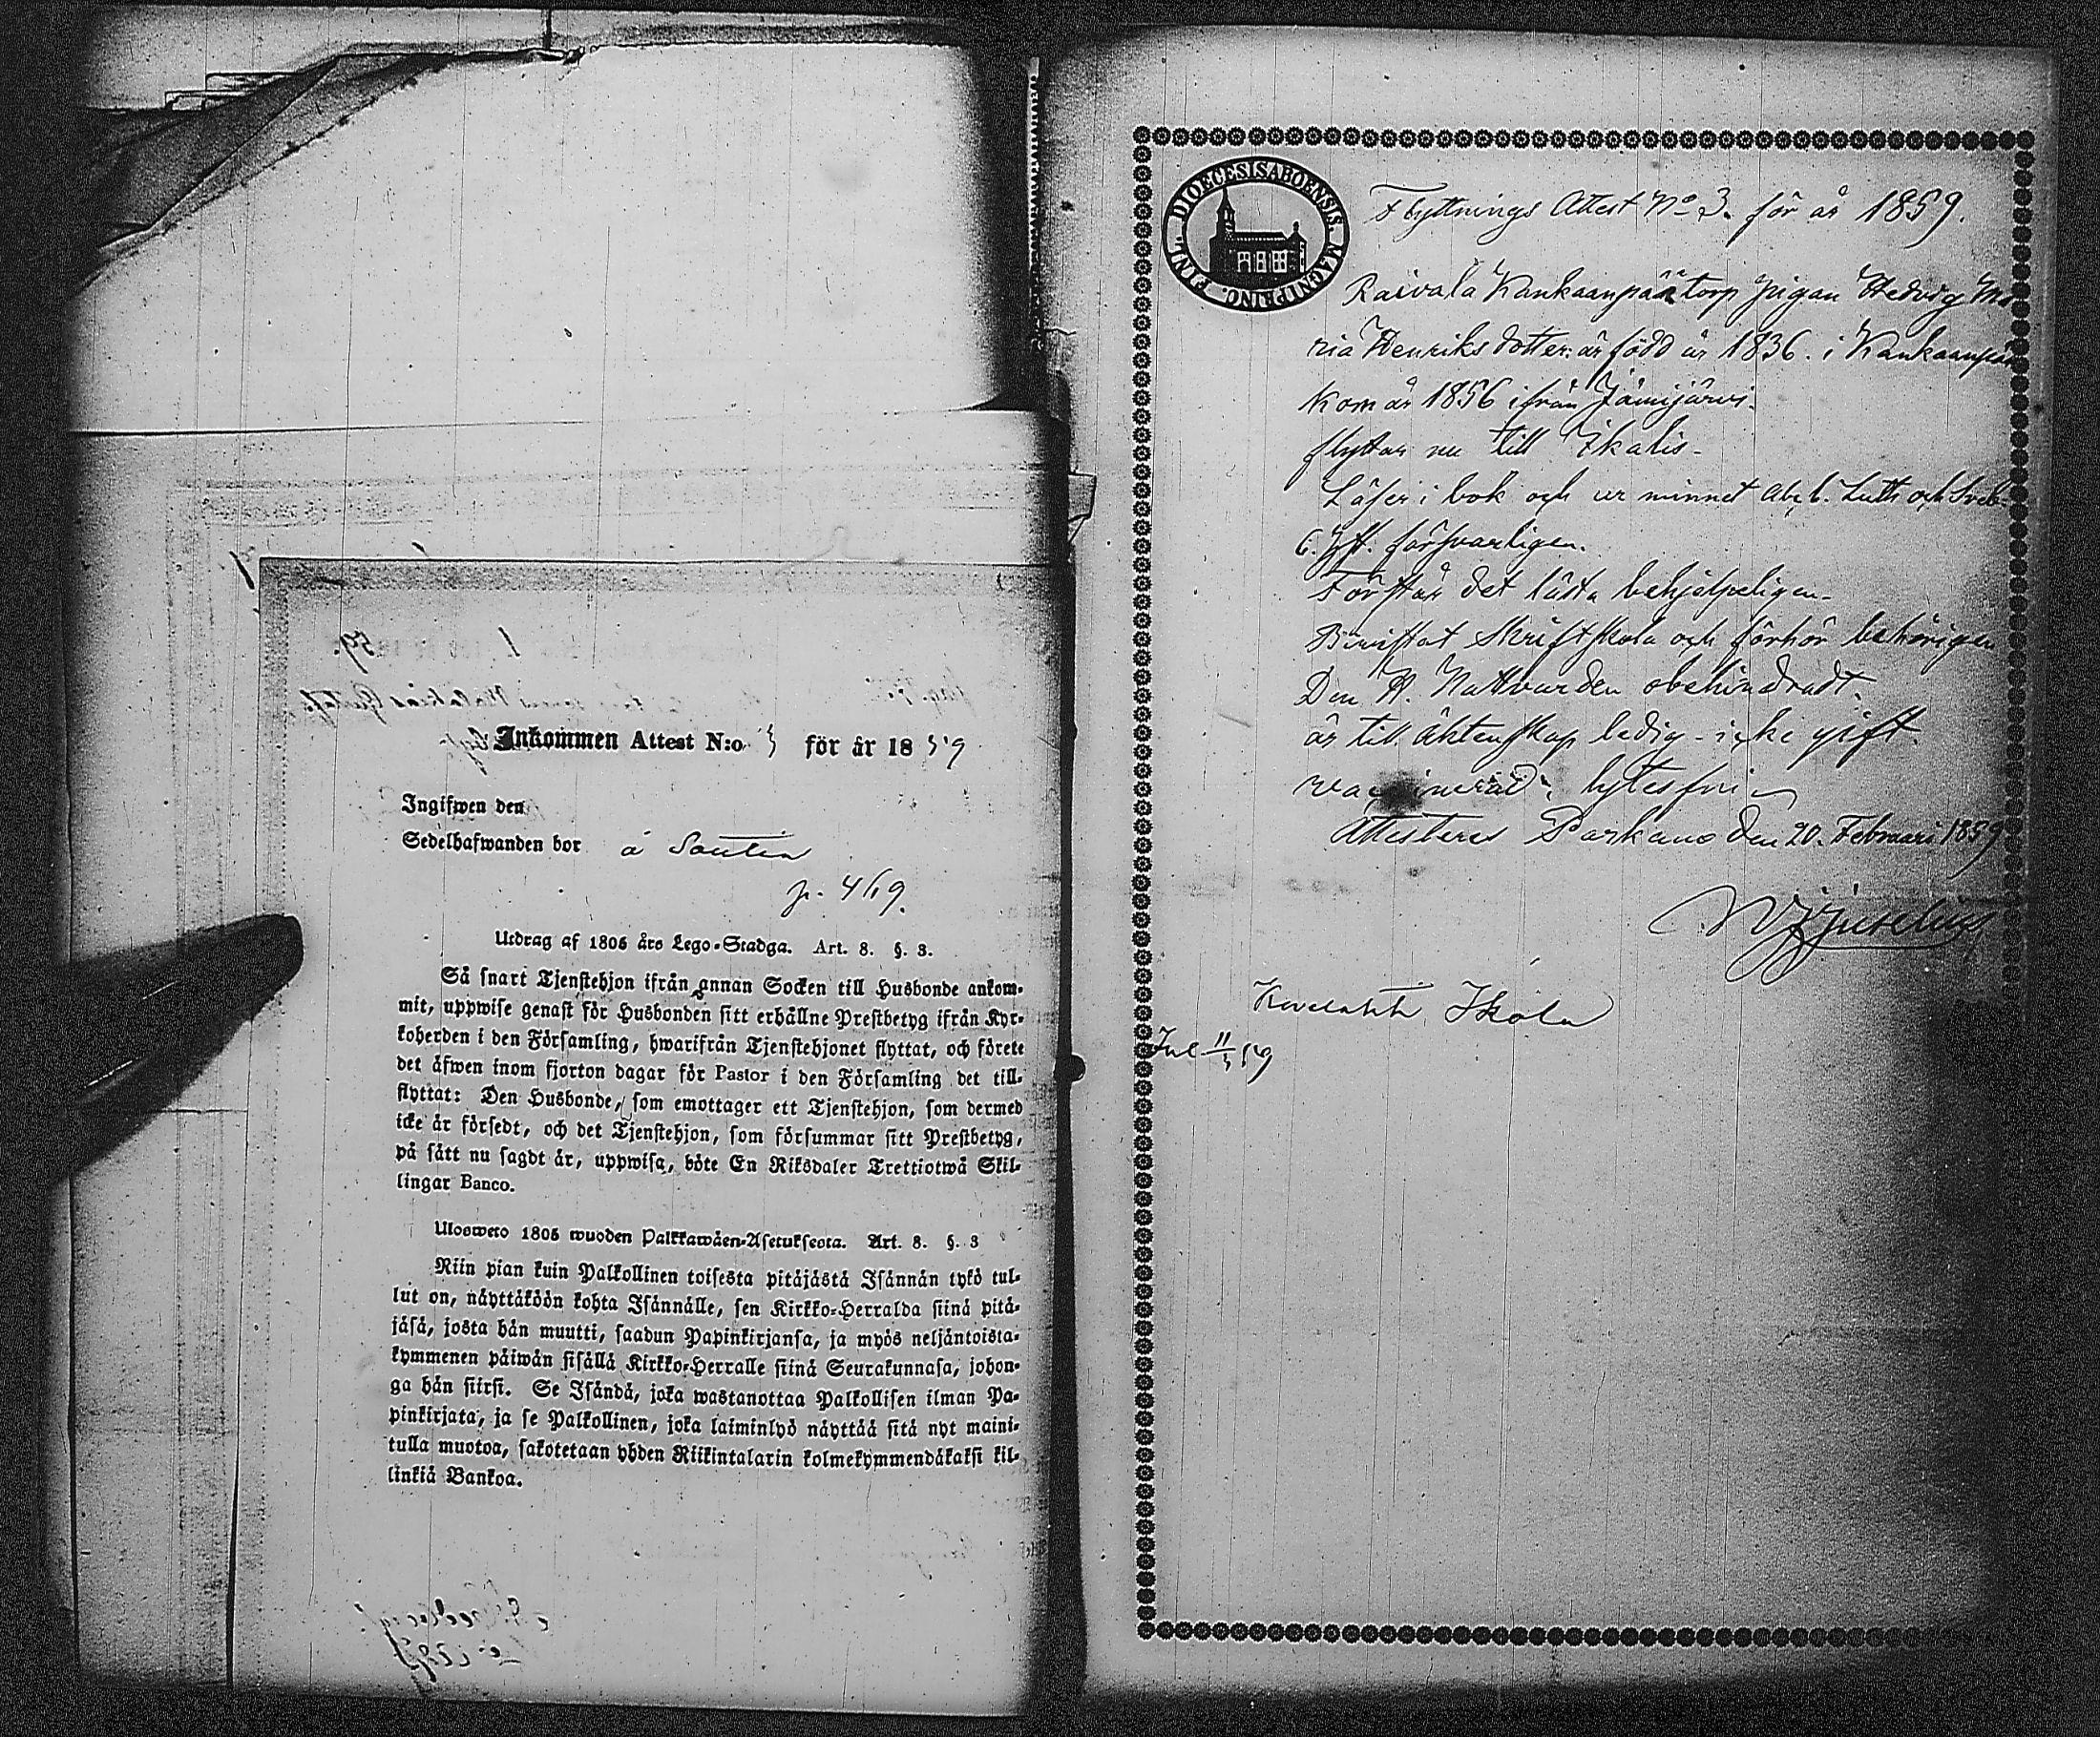 Inkommen Attest N:o 3 för år 1859
Ingifwen den
Sedelhafwanden bor å Sautin
p. 469.
Utdrag af 1805 års Lego-Stadga. Art. 8. §. 3.
Så snart Tjenstehjon ifrån annan Socken till Husbonde ankom-
mit, uppwise genast för Husbonden sitt erhållne Prestbetyg ifrån Kyr-
koherden i den Församling, hwarifrån Tjenstehjonet flyttat, och förete
det äfwen inom fjorton dagar för Pastor i den Församling det till-
flyttat: Den Husbonde, som emottager ett Tjenstehjon, som dermed
icke är försedt, och det Tjenstehjon, som försummar sitt Prestbetyg,
på sätt nu sagdt är, uppwisa, böte En Riksdaler Trettiotwå Skil-
lingar Banco.
Ulosweto 1805 wuoden Palkkawäen-Asetuksesta. Art. 8. §. 3
Niin pian kuin Palkollinen toisesta pitäjästä Isännän tykö tul-
lut on, näyttäköön kohta Isännälle, sen Kirkko-Herralda siinä pitä-
jäsä, josta hän muutti, saadun Papinkirjansa, ja myös neljäntoista-
kymmenen päiwän sisällä Kirkko-Herralle siinä Seurakunnasa, johon-
ga hän siirsi. Se Isändä, joka wastanottaa Palkollisen ilman Pa-
pinkirjata, ja se Palkollinen, joka laiminlyö näyttää sitä nyt maini-
tulla muotoa, sakotetaan yhden Riikintalarin kolmekymmendäkaksi kil-
linkiä Bankoa.
DIOECESIS ABOENSIS. MAGNI PRINC. FINL.
Flyttnings Attest No 3. för år 1859.
Raivala Kankaanpää torp pigan Hedvig Ma
ria Henriksdotter är född år 1836. i Kankaanpää
Kom år 1856 ifrån Jämijärvi.
flyttar nu till Ikalis.
Läser i bok och ur minnet Abc b. Luth och Sveb
C. försvarligen.
Förstår det lästa behjelpeligen.
Bivistat Skriftskola och förhör behörigen
Den H. Nattvarden obehindradt.
är till äktenskap ledig - icke gift.
vaccinerad, lytesfri
Attesteres Parkano den 20. Februari 1859
Kovelahti, Ikola
Inl 11/3 59